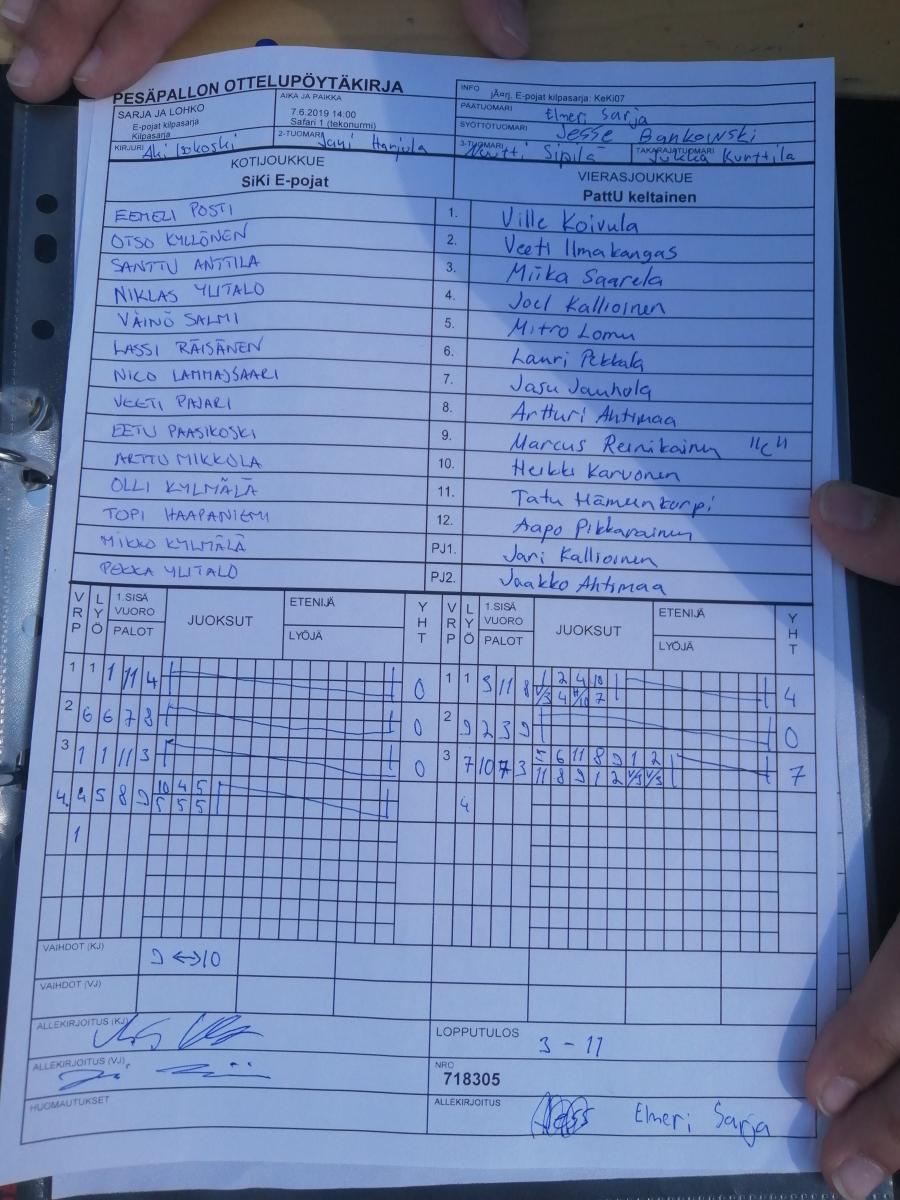 PESÄPALLON OTTELUPÖYTÄKIRJA
SARJA JA LOHKO
E-pojat kilpasarja
Kilpasarja
AIKA JA PAIKKA
7.6.2019 14:00
Safari 1 (tekonurmi)
INFO
jÄerj. E-pojat kilpasarja: KeKi07
PÄÄTUOMARI
Elmeri Sarja
SYÖTTÖTUOMARI
Jesse Bankowski
KIRJURI Aki
2-TUOMARI Jani Harjula
3-TUOMARI Sipilä
TAKARAJATUOMARI Jukka Kunttila
KOTIJOUKKUE
SiKi E-pojat
VIERASJOUKKUE
PattU keltainen
EEMELI POSTI 1. Ville Koivula
OTSO KYLLÖNEN 2. Veeti Ilmakangas
SANTTU ANTTILA 3. Miika Saarela
NIKLAS YLITALO 4. Joel Kallioinen
VÄINÖ SALMI 5. Mitro Lomu
LASSI RÄISÄNEN 6. Lauri Pekkala
NICO LAMMASSAARI 7. Jasu Jauhola
VEETI PAJARI 8. Artturi Ahtimaa
EETU PAASIKOSKI 9. Marcus Reinikainen "C"
ARTTU MIKKOLA 10. Heikki Karvonen
OLLI KYLMÄLÄ 11. Tatu Hämeenkorpi
TOPI HAAPANIEMI 12. Aapo Pikkarainen
MIKKO KYLMÄLÄ PJ1. Jari Kallioinen
PEKKA YLITALO PJ2. Jaakko Ahtimaa
VRP LYÖ 1.SISÄ VUORO PALOT JUOKSUT ETENIJÄ LYÖJÄ YHT VRP LYÖ 1.SISÄ VUORO PALOT JUOKSUT ETENIJÄ LYÖJÄ YHT
1 1 1 11 4 0 1 1 3 11 8 1 2 4 10 4
V/3 4 7
2 6 6 7 8 0 2 9 2 3 9 0
3 1 1 11 3 0 3 7 10 7 3 5 6 11 8 9 1 2 7
11 8 9 1 2 V/3 V/3
4. 4 5 8 9 10 4 5 4
5 5 5
1
VAIHDOT (KJ)
9 ↔ 10
VAIHDOT (VJ)
ALLEKIRJOITUS (KJ)
LOPPUTULOS
3 - 11
ALLEKIRJOITUS (VJ)
NRO
718305
HUOMAUTUKSET
ALLEKIRJOITUS
Elmeri Sarja